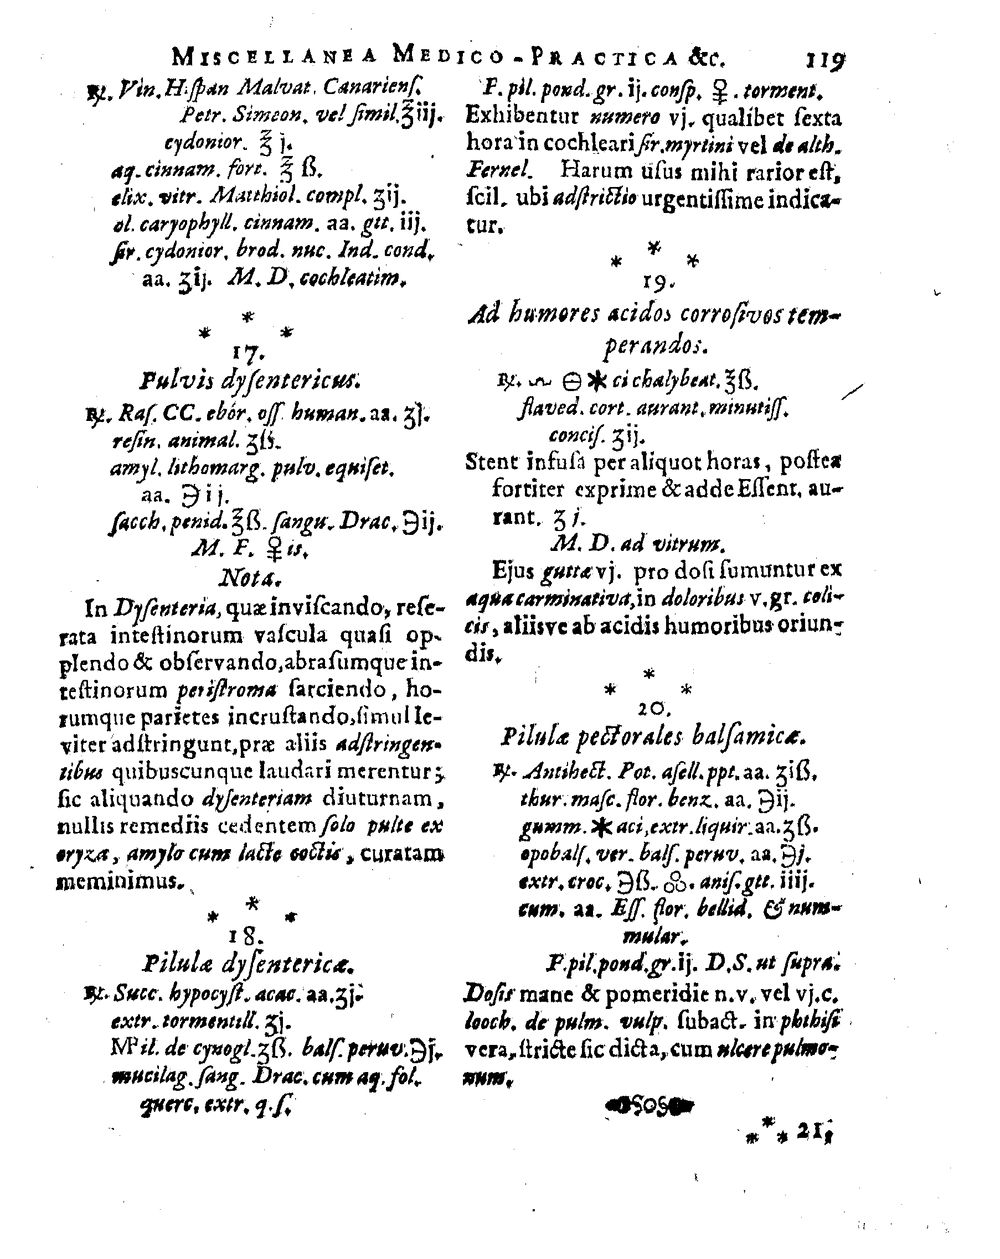 MISCELLANEA MEDICO-PRACTICA &c. 119
℞. Vin. Hiſpan Malvat. Canarienſ.
Petr. Simeon. vel ſimil. ℥iij.
cydonior. ℥ j.
aq. cinnam. fort. ℥ ß.
elix. vitr. Matthiol. compl. ʒij.
ol. caryophyll. cinnam. aa. gtt. iij.
ſir. cydonior. brod. nuc. Ind. cond.
aa. ʒij. M. D. cochleatim.
* * *
17.
Pulvis dyſentericus.
℞. Raſ. CC. ebór. oſſ. human. aa. ʒj.
reſin. animal. ʒß.
amyl. lithomarg. pulv. equiſet.
aa. ℈ij.
ſacch. penid. ℥ß. ſangu. Drac. ℈ij.
M. F. ♀is.
Nota.
In Dyſenteria, quæ inviſcando, reſe-
rata inteſtinorum vaſcula quaſi op-
plendo & obſervando, abraſumque in-
teſtinorum periſtroma ſarciendo, ho-
rumque parietes incruſtando, ſimul le-
viter adſtringunt, præ aliis adſtringen-
tibus quibuscunque laudari merentur;
ſic aliquando dyſenteriam diuturnam,
nullis remediis cedentem ſolo pulte ex
oryza, amylo cum lacte coctis, curatam
meminimus.
* * *
18.
Pilulæ dyſentericæ.
℞. Succ. hypocyſt. acac. aa. ʒj.
extr. tormentill. ʒj.
Mſil. de cynogl. ʒß. balſ. peruv. ℈j.
mucilag. ſang. Drac. cum aq. fol.
querc. extr. q. ſ.
F. pil. pond. gr. ij. conſp. ♀. torment.
Exhibentur numero vj. qualibet ſexta
hora in cochleari ſir. myrtini vel de alth.
Fernel. Harum uſus mihi rarior eſt,
ſcil. ubi adſtrictio urgentiſſime indica-
tur.
* * *
19.
Ad humores acidos corroſivos tem-
perandos.
℞. 🜖 ⊖ ✱ ci chalybeat. ℥ß.
flaved. cort. aurant. minutiſſ.
conciſ. ʒij.
Stent infuſa per aliquot horas, poſtea
fortiter exprime & adde Eſſent. au-
rant. ʒ j.
M. D. ad vitrum.
Ejus guttæ vj. pro doſi ſumuntur ex
aqua carminativa, in doloribus v. gr. coli-
cis, aliisve ab acidis humoribus oriun-
dis.
* * *
20.
Pilulæ pectorales balſamicæ.
℞. Antihect. Pot. aſell. ppt. aa. ʒiß.
thur. maſc. flor. benz. aa. ℈ij.
gumm. ✱ aci, extr. liquir. aa. ʒß.
opobalſ. ver. balſ. peruv. aa. ℈j.
extr. croc. ℈ß. ஃ. aniſ. gtt. iiij.
cum. aa. Eſſ. flor. bellid. & num-
mular.
F. pil. pond. gr. ij. D. S. ut ſupra.
Doſis mane & pomeridie n. v. vel vj. c.
looch. de pulm. vulp. ſubact. in phthiſi
vera, ſtricte ſic dicta, cum ulcere pulmo-
num.
* * * 21.